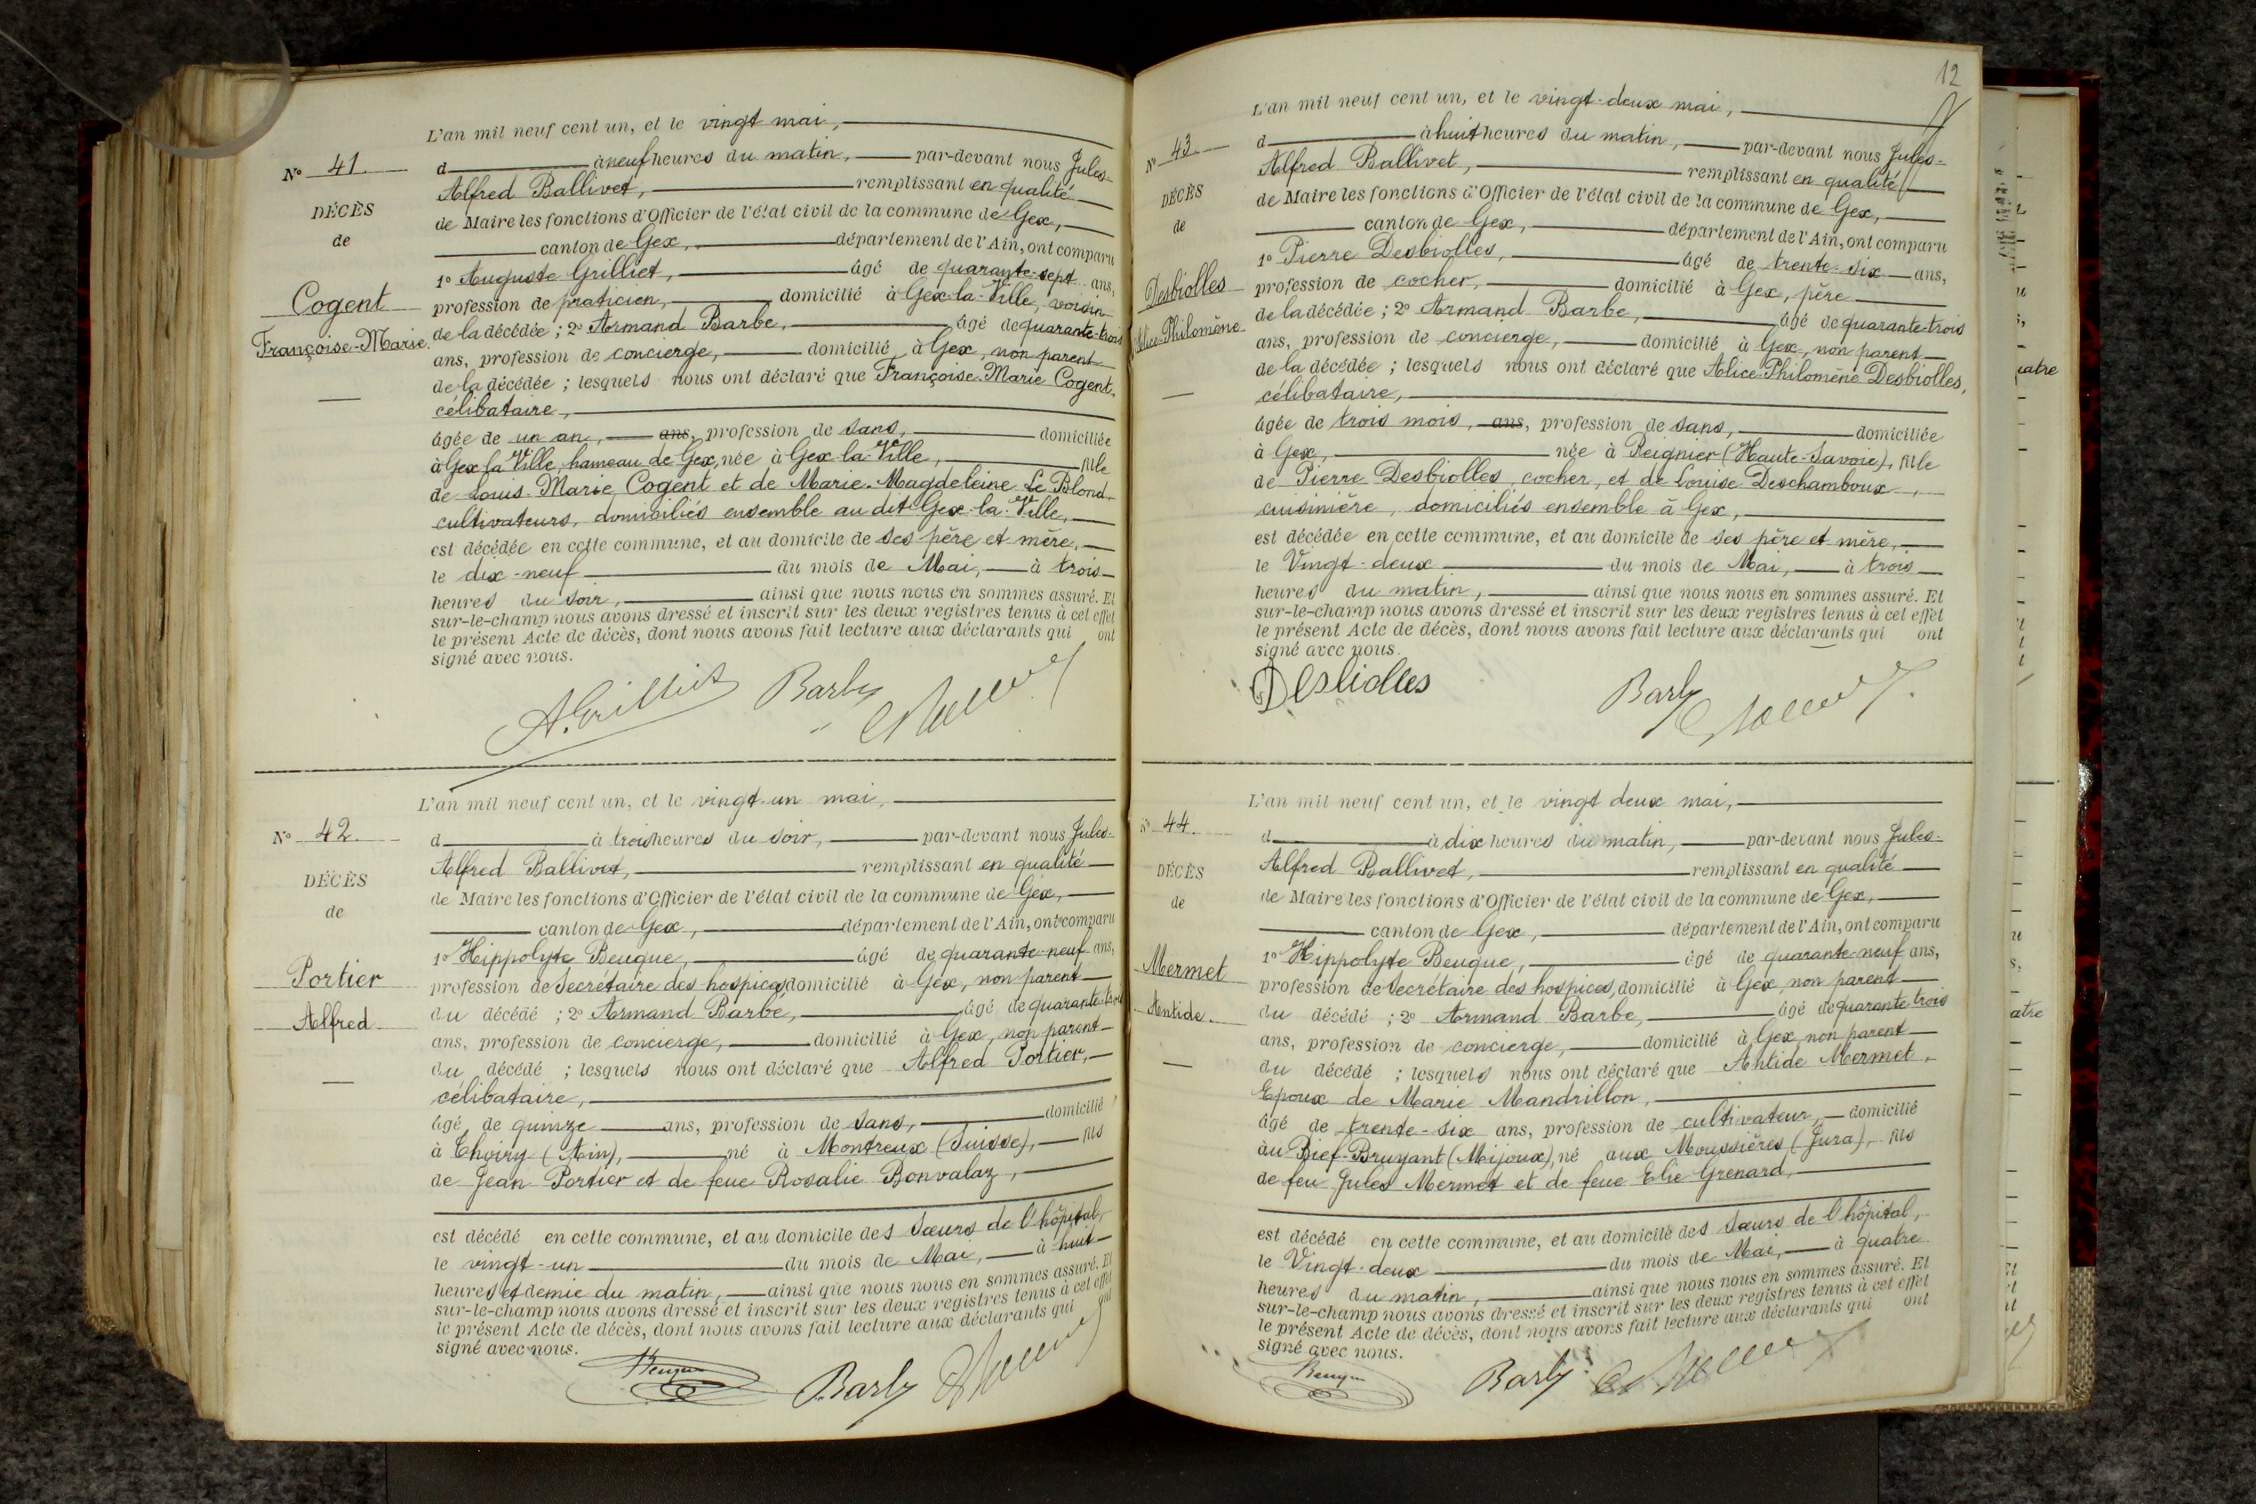 L'an mil neuf cent un, et le vingt mai,
N° 41.
d à neuf heures du matin, par-devant nous Jules-
Alfred Ballivet, remplissant en qualité
DÉCÈS
de Maire les fonctions d'Officier de l'état civil de la commune de Gex,
de
canton de Gex, département de l'Ain, ont comparu
1° Auguste Grilliet, âgé de quarante-sept ans,
Cogent
profession de praticien, domicilié à Gex-la-Ville, voisin
Françoise-Marie.
de la décédée ; 2° Armand Barbe, âgé de quarante-trois
ans, profession de concierge, domicilié à Gex, non parent
de la décédée ; lesquels nous ont déclaré que Françoise-Marie Cogent,
célibataire,
âgée de un an, ans, profession de sans, domiciliée
à Gex la Ville, hameau de Gex, née à Gex-la-Ville, fille
de Louis-Marie Cogent et de Marie-Magdeleine Le Blond
cultivateurs, domiciliés ensemble au dit Gex-la-Ville,
est décédée en cette commune, et au domicile de ses père et mère,
le dix-neuf du mois de Mai, à trois
heures du soir, ainsi que nous nous en sommes assuré. Et
sur-le-champ nous avons dressé et inscrit sur les deux registres tenus à cet effet
le présent Acte de décès, dont nous avons fait lecture aux déclarants qui ont
signé avec nous.
A. Grilliet Barbe
L'an mil neuf cent un, et le vingt-un mai,
N° 42.
d à trois heures du soir, par-devant nous Jules-
Alfred Ballivet, remplissant en qualité
DÉCÈS
de Maire les fonctions d'Officier de l'état civil de la commune de Gex,
de
canton de Gex, département de l'Ain, ont comparu
1° Hippolyte Beugue, âgé de quarante-neuf ans,
Portier
profession de Secrétaire des hospices, domicilié à Gex, non parent
Alfred
du décédé ; 2° Armand Barbe, âgé de quarante-trois
ans, profession de concierge, domicilié à Gex, non parent
du décédé ; lesquels nous ont déclaré que Alfred Portier,
célibataire,
âgé de quinze ans, profession de sans, domicilié
à Thoiry (Ain), né à Montreux (Suisse), fils
de Jean Portier et de feue Rosalie Bonvalaz,
est décédé en cette commune, et au domicile des sœurs de l'hôpital,
le vingt-un du mois de Mai, à huit
heures et demie du matin, ainsi que nous nous en sommes assuré. Et
sur-le-champ nous avons dressé et inscrit sur les deux registres tenus à cet effet
le présent Acte de décès, dont nous avons fait lecture aux déclarants qui ont
signé avec nous.
Beugue Barbe
12
L'an mil neuf cent un, et le vingt-deux mai,
N° 43.
d à huit heures du matin, par-devant nous Jules-
Alfred Ballivet, remplissant en qualité
DÉCÈS
de Maire les fonctions d'Officier de l'état civil de la commune de Gex,
de
canton de Gex, département de l'Ain, ont comparu
1° Pierre Desbiolles, âgé de trente-six ans,
Desbiolles
profession de cocher, domicilié à Gex, père
Alice-Philomène
de la décédée ; 2° Armand Barbe, âgé de quarante-trois
ans, profession de concierge, domicilié à Gex, non parent
de la décédée ; lesquels nous ont déclaré que Alice-Philomène Desbiolles,
célibataire,
âgée de trois mois, ans, profession de sans, domiciliée
à Gex, née à Reignier (Haute-Savoie), fille
de Pierre Desbiolles, cocher, et de Louise Deschamboux,
cuisinière, domiciliés ensemble à Gex,
est décédée en cette commune, et au domicile de ses père et mère,
le Vingt-deux du mois de Mai, à trois
heures du matin, ainsi que nous nous en sommes assuré. Et
sur-le-champ nous avons dressé et inscrit sur les deux registres tenus à cet effet
le présent Acte de décès, dont nous avons fait lecture aux déclarants qui ont
signé avec nous.
Desbiolles Barbe
L'an mil neuf cent un, et le vingt deux mai,
N° 44.
d à dix heures du matin, par-devant nous Jules-
Alfred Ballivet, remplissant en qualité
DÉCÈS
de Maire les fonctions d'Officier de l'état civil de la commune de Gex,
de
canton de Gex, département de l'Ain, ont comparu
1° Hippolyte Beugue, âgé de quarante-neuf ans,
Mermet
profession de Secrétaire des hospices, domicilié à Gex, non parent
Antide.
du décédé ; 2° Armand Barbe, âgé de quarante-trois
ans, profession de concierge, domicilié à Gex, non parent
du décédé ; lesquels nous ont déclaré que Antide Mermet,
Epoux de Marie Mandrillon,
âgé de trente-six ans, profession de cultivateur, domicilié
au Bief-Bruyant (Mijoux), né aux Moussières (Jura), fils
de feu Jules Mermet et de feue Elie Grenard,
est décédé en cette commune, et au domicile des sœurs de l'hôpital,
le Vingt-deux du mois de Mai, à quatre
heures du matin, ainsi que nous nous en sommes assuré. Et
sur-le-champ nous avons dressé et inscrit sur les deux registres tenus à cet effet
le présent Acte de décès, dont nous avons fait lecture aux déclarants qui ont
signé avec nous.
Beugue Barbe